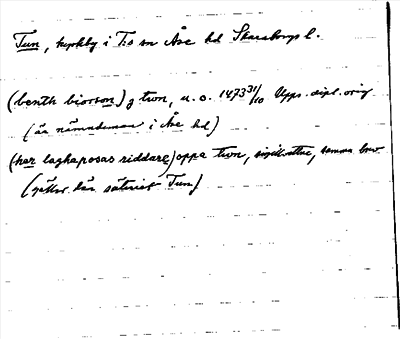 Tun, kyrkby i T:s sn Åse hd Skaraborgs l.
(benth biorson) j twn, u. o. 1473 31/10 Upps. dipl. orig
(är nämndeman i Åse hd)
(her laghaposas riddare) oppa twn, sigillvittne, samma brev
(gäller här säteriet Tun)